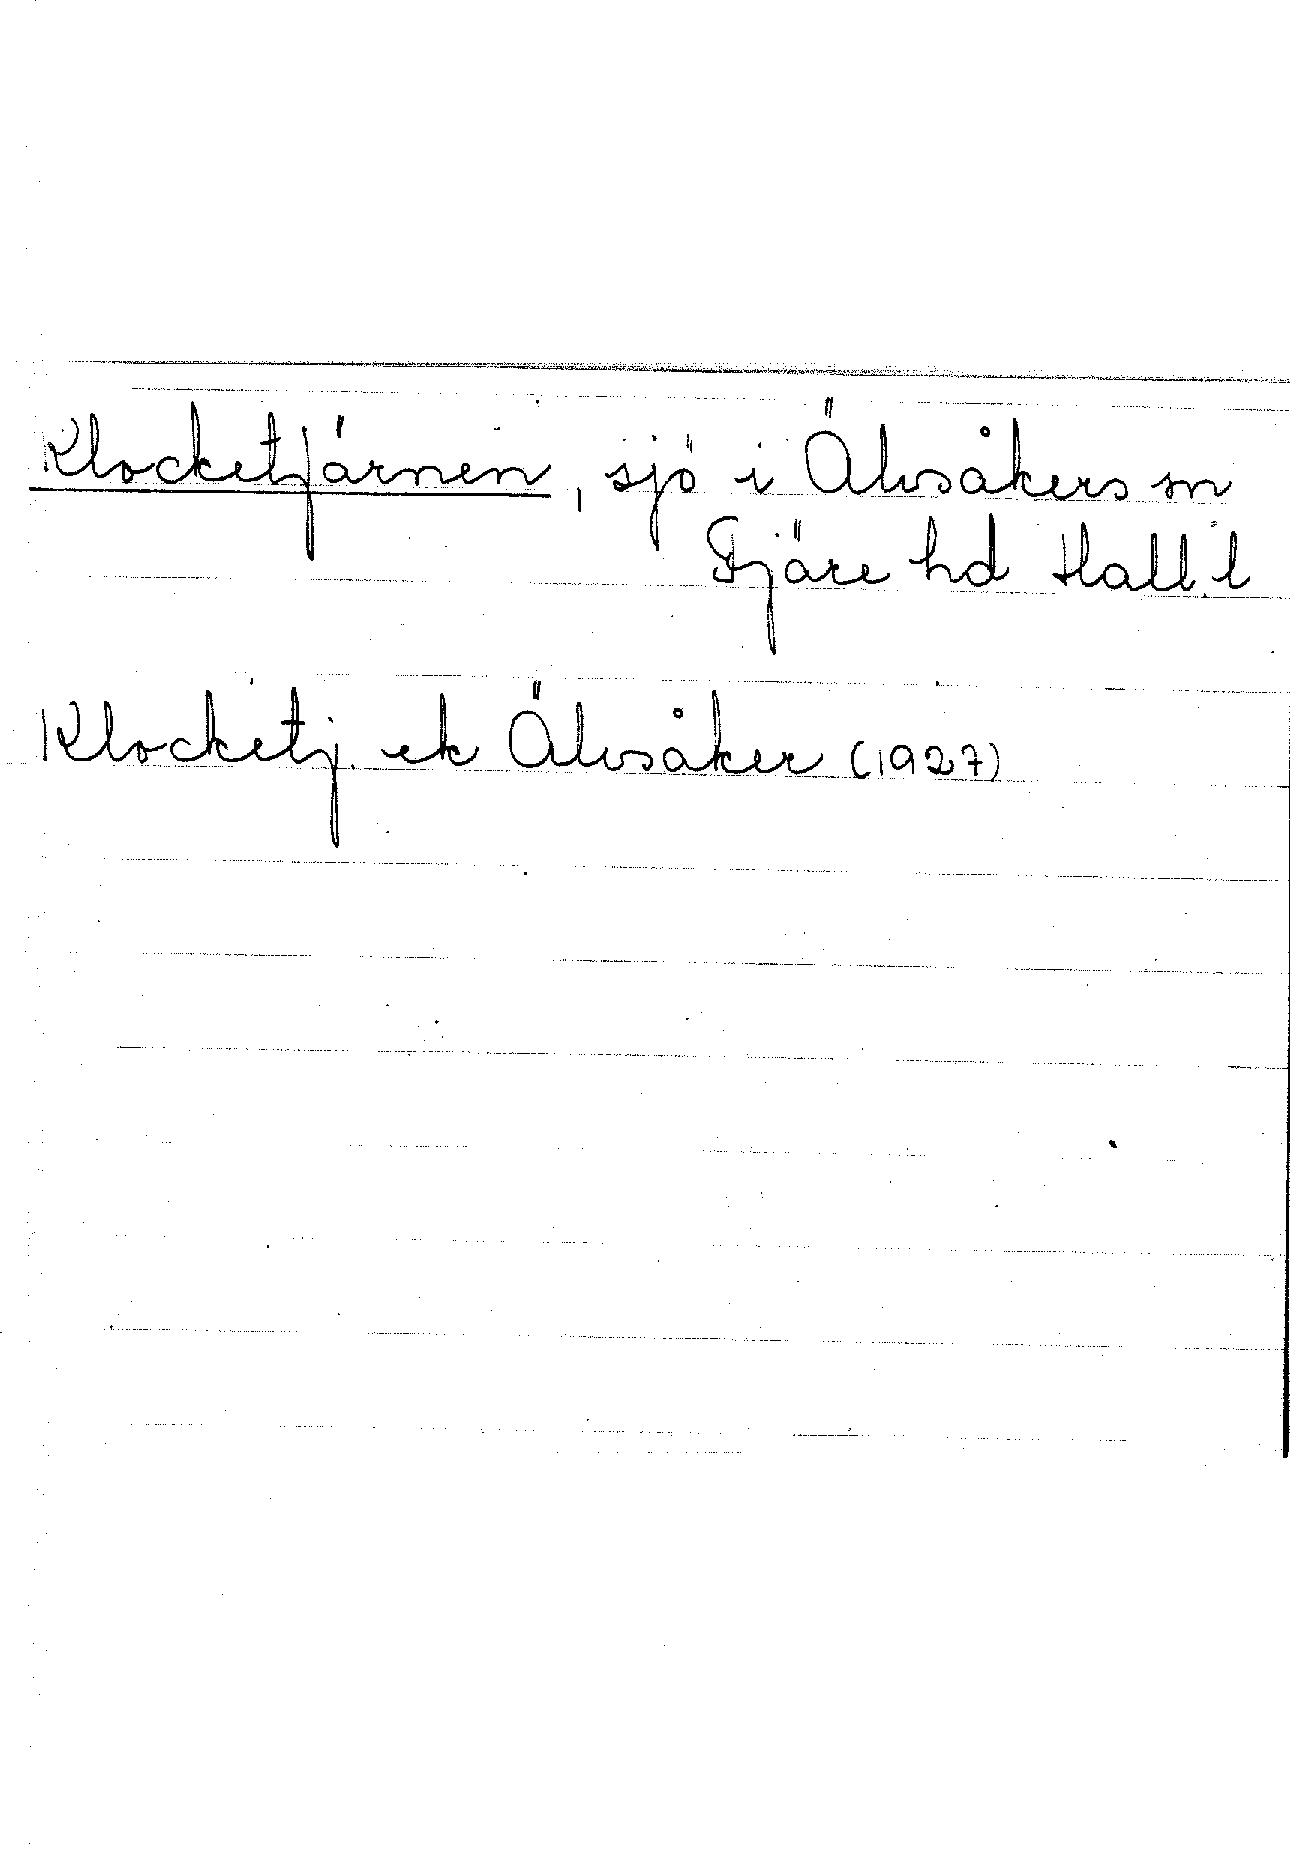 Klocketjärnen, sjö i Älvsåkers sn
Fjäre hd Hall.l
Klocketj. ek Älvsåker (1927)